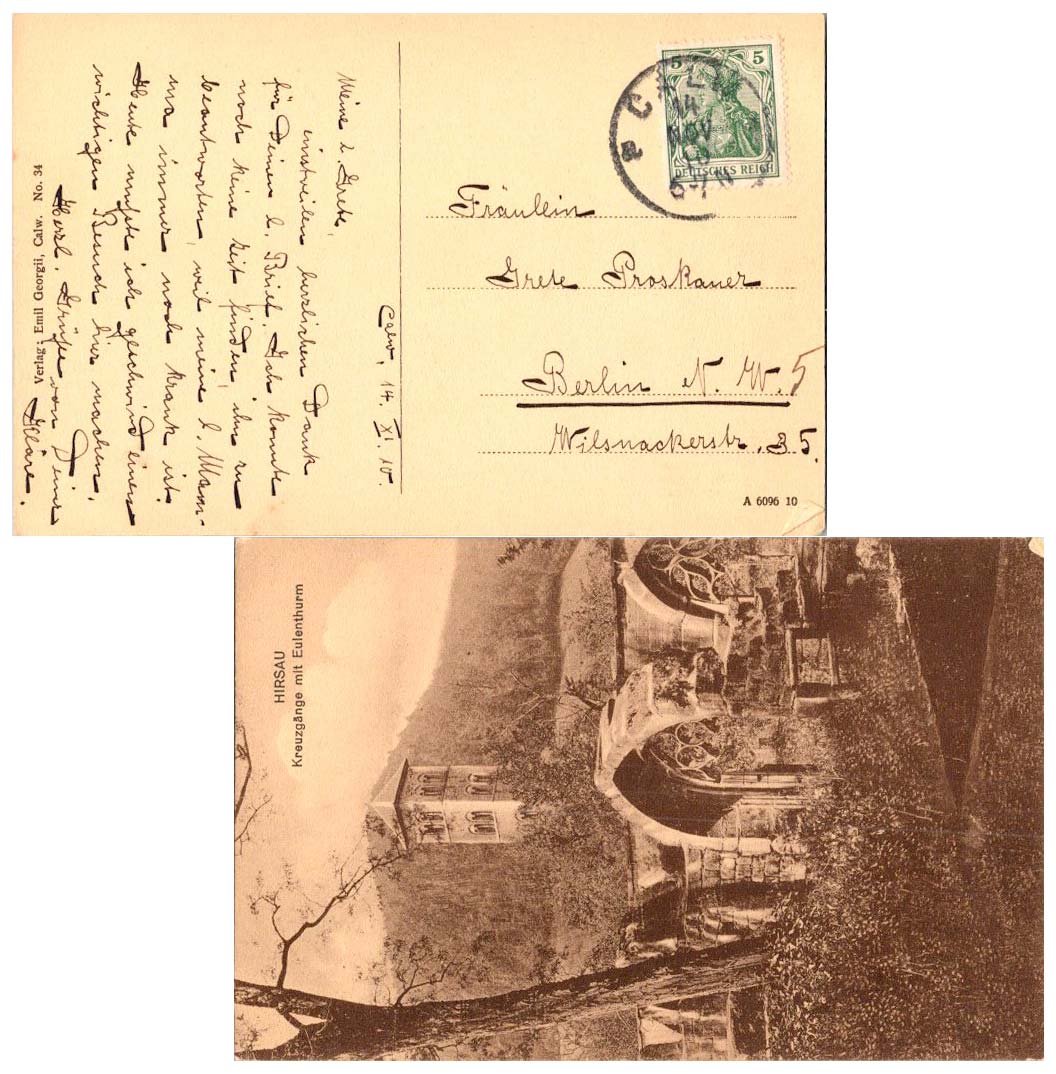 Calw, 14. XI. 10.
Meine l. Grete,
einstweilen herzlichen Dank
für Deinen l. Brief. Ich konnte
noch keine Zeit finden, ihn zu
beantworten, weil meine l. Mam-
ma immer noch krank ist.
Heute mußte ich geschwind einen
wichtigen Besuch hier machen.
Herzl. Grüße von Deiner
Kläre.
Verlag: Emil Georgii, Calw. No. 34
5 5
DEUTSCHES REICH
CALW
14
NOV
10
6-7 N
Fräulein
Grete Proskauer
Berlin N. W. 5
Wilsnackerstr. 35.
A 6096 10
HIRSAU
Kreuzgänge mit Eulenthurm